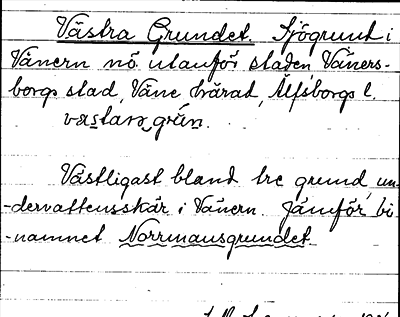 Västra Grundet. Sjögrund i
Vänern nö utanför staden Väners-
borgs stad, Väne härad, Älfsborgs l.
västarə grún.
Västligast bland tre grund, un-
-dervattensskär i Vänern. Jämför bi
-namnet Norrmansgrundet.